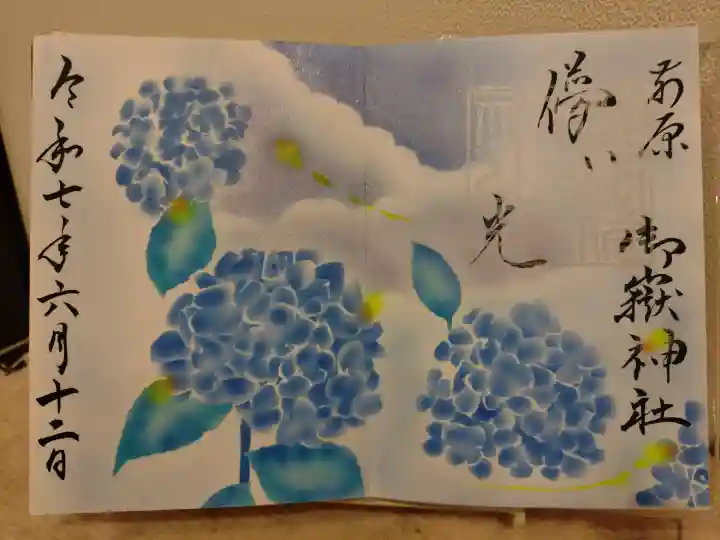 前原 御嶽神社
儚い
光
令和七年六月十二日